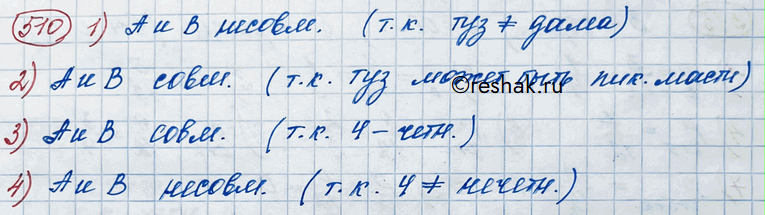 510 1) А и В несовм. (т.к. туз ≠ дама)
2) А и В совм. (т.к. туз может быть пик. масти)
©reshak.ru
3) А и В совм. (т.к. 4 – четн.)
4) А и В несовм. (т.к. 4 ≠ нечетн.)